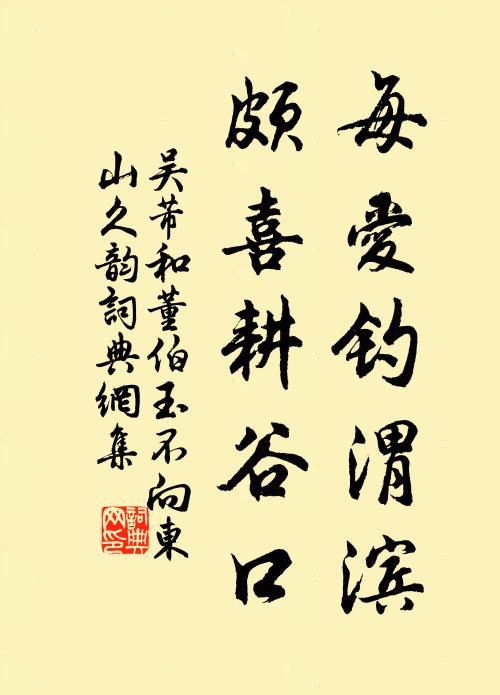 每愛钓渭滨
頗喜耕谷口
吴芾和董伯玉不向東
山久韵詞典網集
詞典
网印